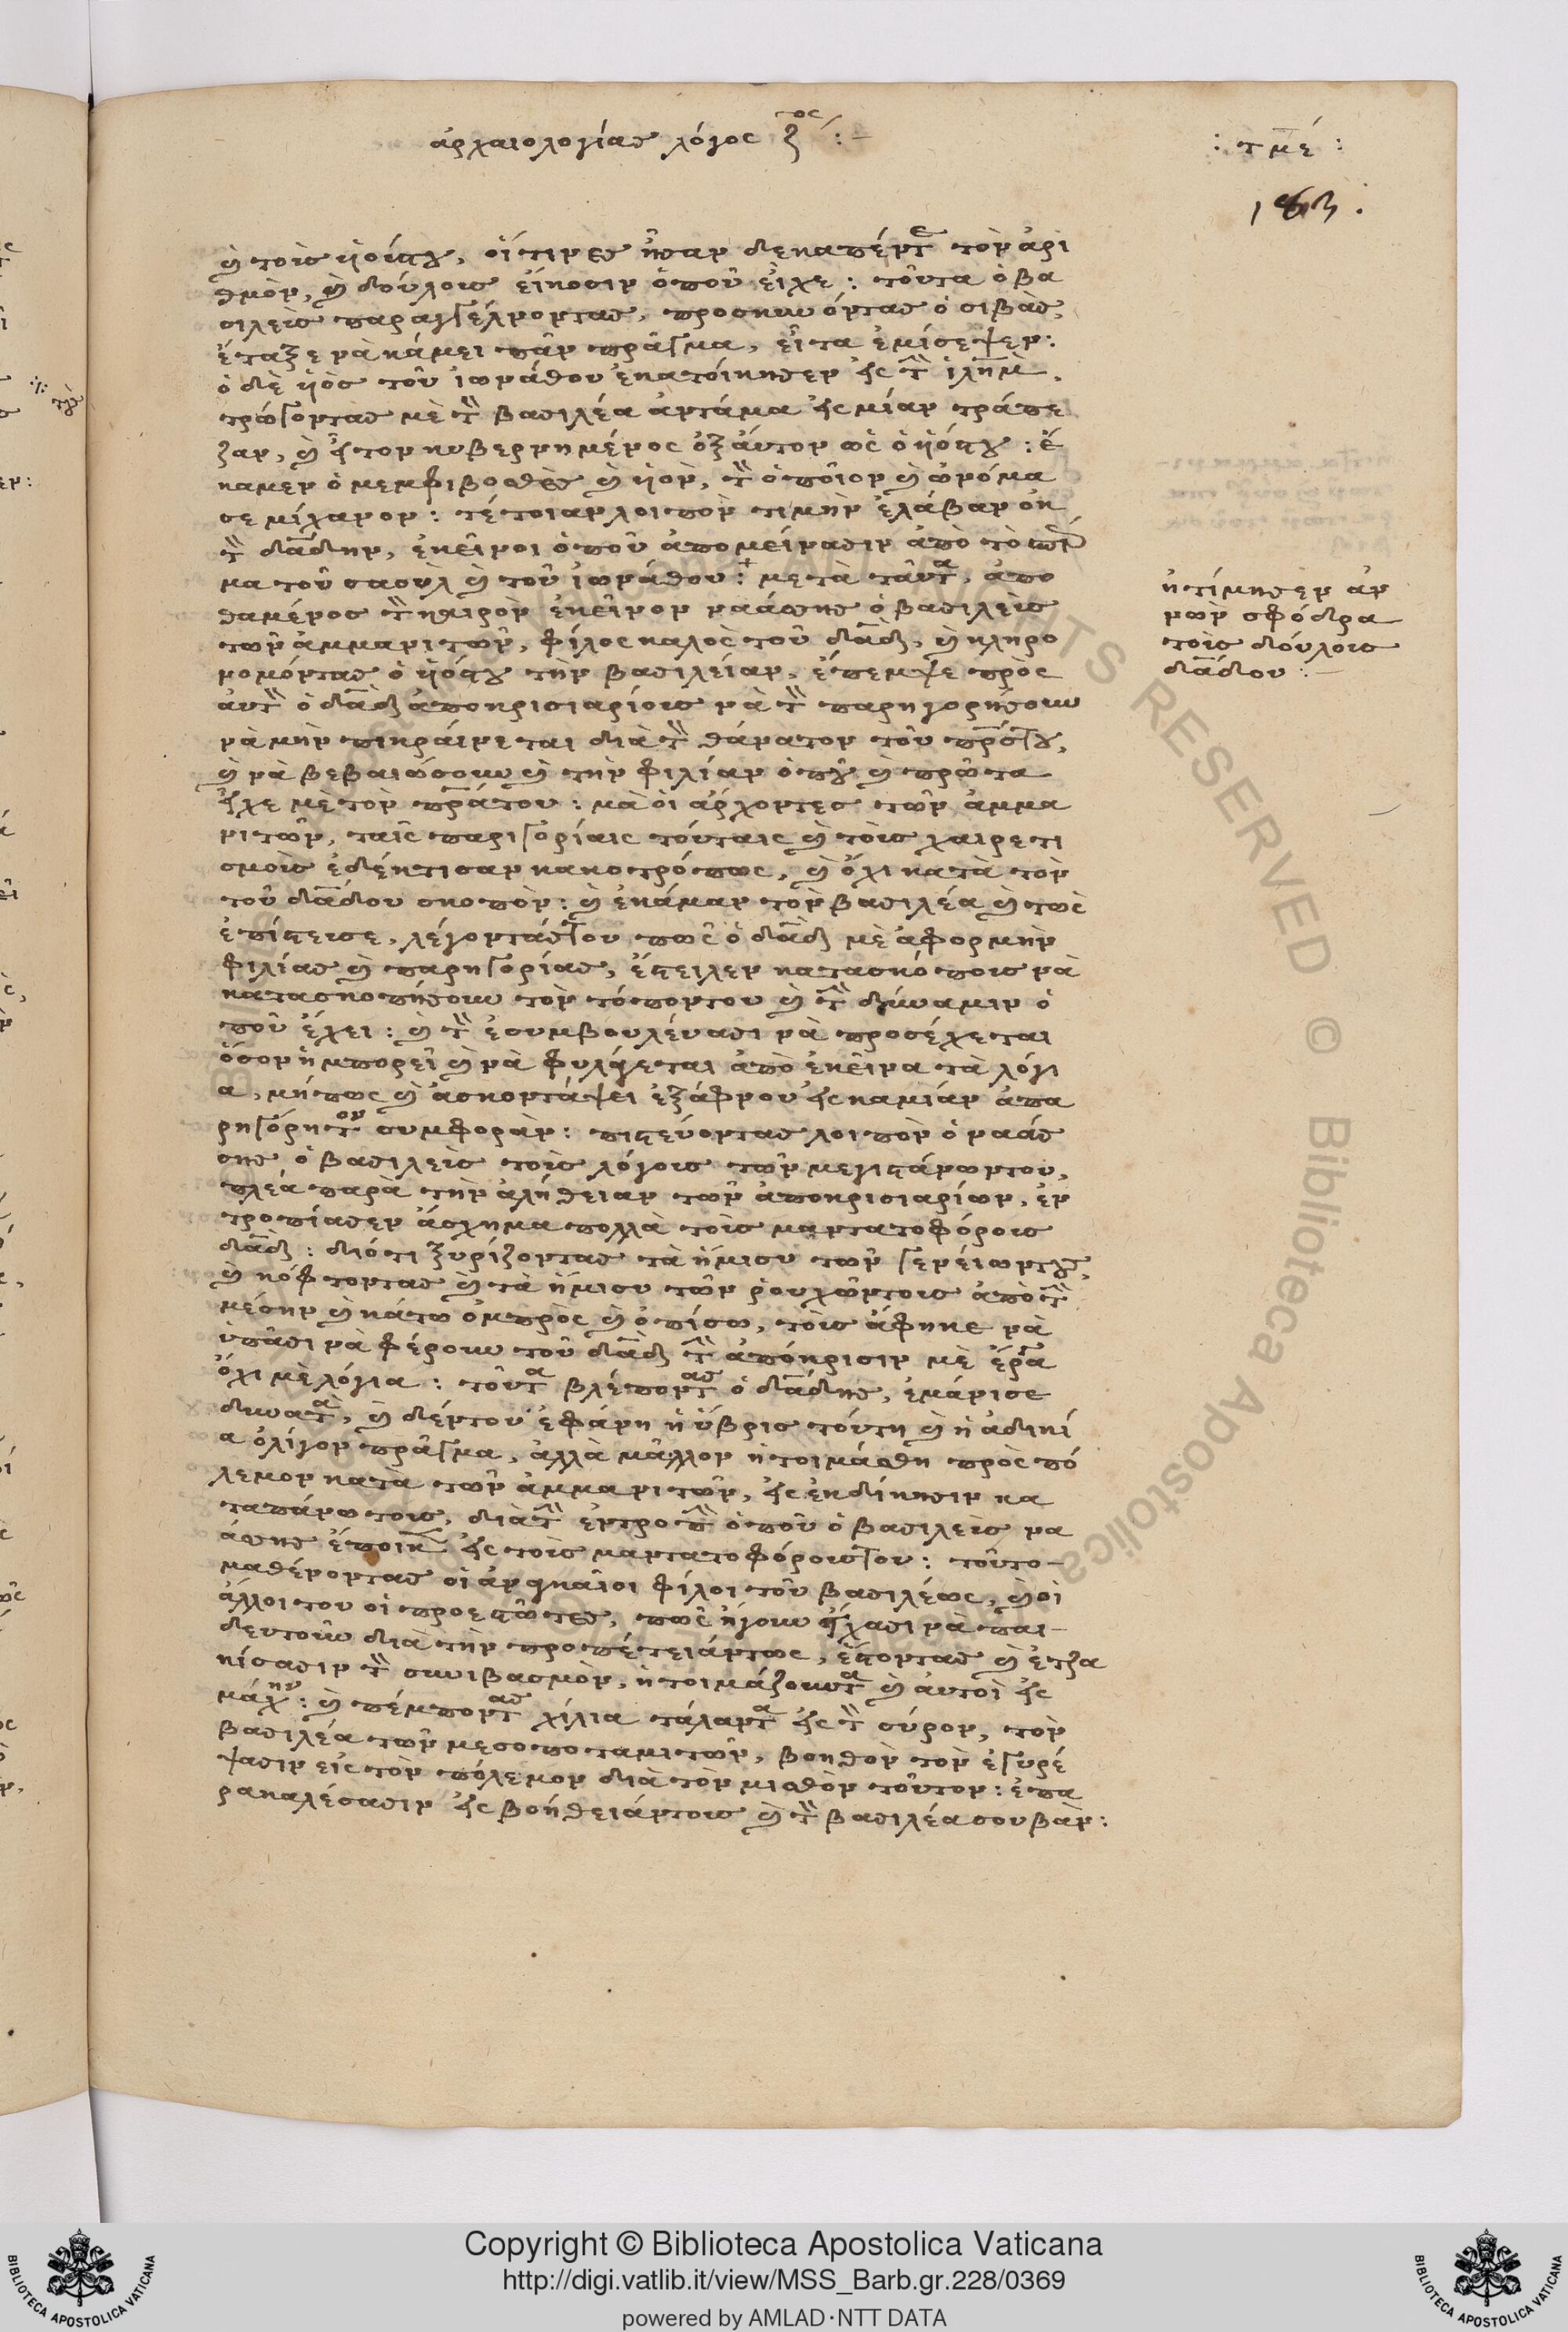 ἀρχαιολογίας λόγος ζος :-
: τμέ :
183.
ὴ τοῖς ὑοίτου, οἵτινες ἦσαν δεκαπέντε τὸν ἀρι
θμὸν, ὴ δούλοις εἴκοσιν ὁποῦ εἶχε : τοῦτα ὁ βα
σιλεὺς παραγγέλνοντας, προσκυνόντας ὁ σιβὰς,
ἔταξε νὰ κάμει πᾶν πρᾶγμα, εἶτα ἐμίσεψεν :
ὁ δὲ ὑὸς τοῦ ἰωνάθου ἐκατοίκησεν εἰς τὴν ἱλημ.
τρώγοντας μὲ τὸν βασιλέα ἀντάμα εἰς μίαν τράπε
ζαν, ὴ ἦτον κυβερνημένος ὀξ αὐτον ὡς ὁ ὑόςτου : ἔ
καμεν ὁ μεμφιβοσθὲς ὴ ὑὸν, τὸν ὁποῖον ὴ ὠνόμα
σε μίχανον : τέτοιαν λοιπὸν τιμὴν ἐλάβαν ἐκ
τὸν δαδην, ἐκεῖνοι ὁποῦ ἀπομείνασιν ἀπὸ τὸ
μα τοῦ σαοὺλ ὴ τοῦ ἰωνάθου : μετὰ ταῦτα, ἀπο
θαμένος τὸν καιρὸν ἐκεῖνον ναάσης ὁ βασιλεὺς
τῶν ἀμμανιτῶν, φίλος καλὸς τοῦ δαδ, ὴ κληρο
νομόντας ὁ ὑόςτου τὴν βασιλείαν, ἔπεμψε πρὸς
αὐτὸν ὁ δαδ ἀποκρισιαρίους νὰ τὸν παρηγορήσουν
νὰ μὴν πικραίνεται διὰ τὸν θάνατον τοῦ πρστου,
ὴ νὰ βεβαιώσουν ὴ τὴν φιλίαν ὁποῦ ὴ πρῶτα
εἶχε μὲ τὸν πράτου : μὰ οἱ ἄρχοντες τῶν ἀμμα
νιτῶν, ταῖς παριγορίαις τούταις ὴ τοὺς χαιρετι
σμοὺς ἐδέκτισαν κακοτρόπως, ὴ ὄχι κατὰ τὸν
τοῦ δαδου σκοπὸν : ὴ ἐκάμαν τὸν βασιλέα ὴ τως
ἐπίστεισε, λέγοντάςτου πῶς ὁ δαδ μὲ ἀφορμὴν
φιλίας ὴ παρηγορίας, ἔστειλεν κατασκόποις νὰ
κατασκοπήσουν τὸν τόποντου ὴ τὴν δύναμιν ὁ
ποῦ ἔχει : ὴ τὸν ἐσυμβουλεύασι νὰ προσέχεται
ὅσον ἠμπορεῖ ὴ νὰ φυλάγεται ἀπὸ ἐκεῖνα τὰ λόγι
α, μήπως ὴ ἀσκοντάψει ἐξάφνου εἰς καμίαν ἀπα
ρηγόρητον συμφορὰν : πιστεύοντας λοιπὸν ὁ ναάσ
σης ὁ βασιλεὺς τοὺς λόγους τῶν μεγιστάνωντου,
πλέα παρὰ τὴν ἀλήθειαν τῶν ἀποκρισιαρίων, ἐν
τροπίασεν ἄσχημα πολλὰ τοὺς μαντατοφόρους
δαδ : διότι ξυρίζοντας τὰ ἥμισυ τῶν γενείωντου,
ὴ κόφτοντας ὴ τὰ ἥμισυ τῶν ῥουχῶντοις ἀπὸ τὴν
μέσην ὴ κάτω ὀμπρὸς ὴ ὀπίσω, τοὺς ἄφηκε νὰ
ὑπᾶσι νὰ φέρουν τοῦ δαδ τὴν ἀπόκρισιν μὲ ἔργα
ὄχι μὲ λόγια : τοῦτα βλέποντας ὁ δαδης, ἐμάνισε
δυνατὰ, ὴ δέντου ἐφάνη ἡ ὕβρις τούτη ὴ ἡ ἀδικί
α ὀλίγον πρᾶγμα, ἀλλὰ μᾶλλον ἡτοιμάσθη πρὸς πό
λεμον κατὰ τῶν ἀμμανιτῶν, εἰς ἐκδίκησιν κα
ταπάνωτοις, διὰ τὴν ἐντροπὴν ὁποῦ ὁ βασιλεὺς να
άσης ἔποικεν εἰς τοὺς μαντατοφόρουςτου : τοῦτο-
μαθένοντας οἱ ἀναγκαῖοι φίλοι τοῦ βασιλέως, ὴ οἱ
ἄλλοι του οἱ προεστῶτες, πῶς ἤγουν εἴχασι νὰ παι-
δευτοῦν διὰ τὴν προπέτειάντως, ἔστοντας ὴ ἐτζα
κίσασιν τὸν συνιβασμὸν, ἡτοιμάζουντα ὴ αὐτοὶ εἰς
μάχην : ὴ πέμποντας χίλια τάλαντα εἰς τὸν σύρον, τὸν
βασιλέα τῶν μεσοποταμιτῶν, βοηθὸν τὸν ἐγυρέ
ψασιν εἰς τὸν πόλεμον διὰ τὸν μισθὸν τοῦτον : ἐπα
ρακαλέσασιν εἰς βοήθειάντοις ὴ τὸν βασιλέα σουβὰν :
ἠτίμησεν ἀν
νων σφόδρα
τοὺς δούλους
δαδου :-
Copyright © Biblioteca Apostolica Vaticana
http://digi.vatlib.it/view/MSS_Barb.gr.228/0369
powered by AMLAD·NTT DATA